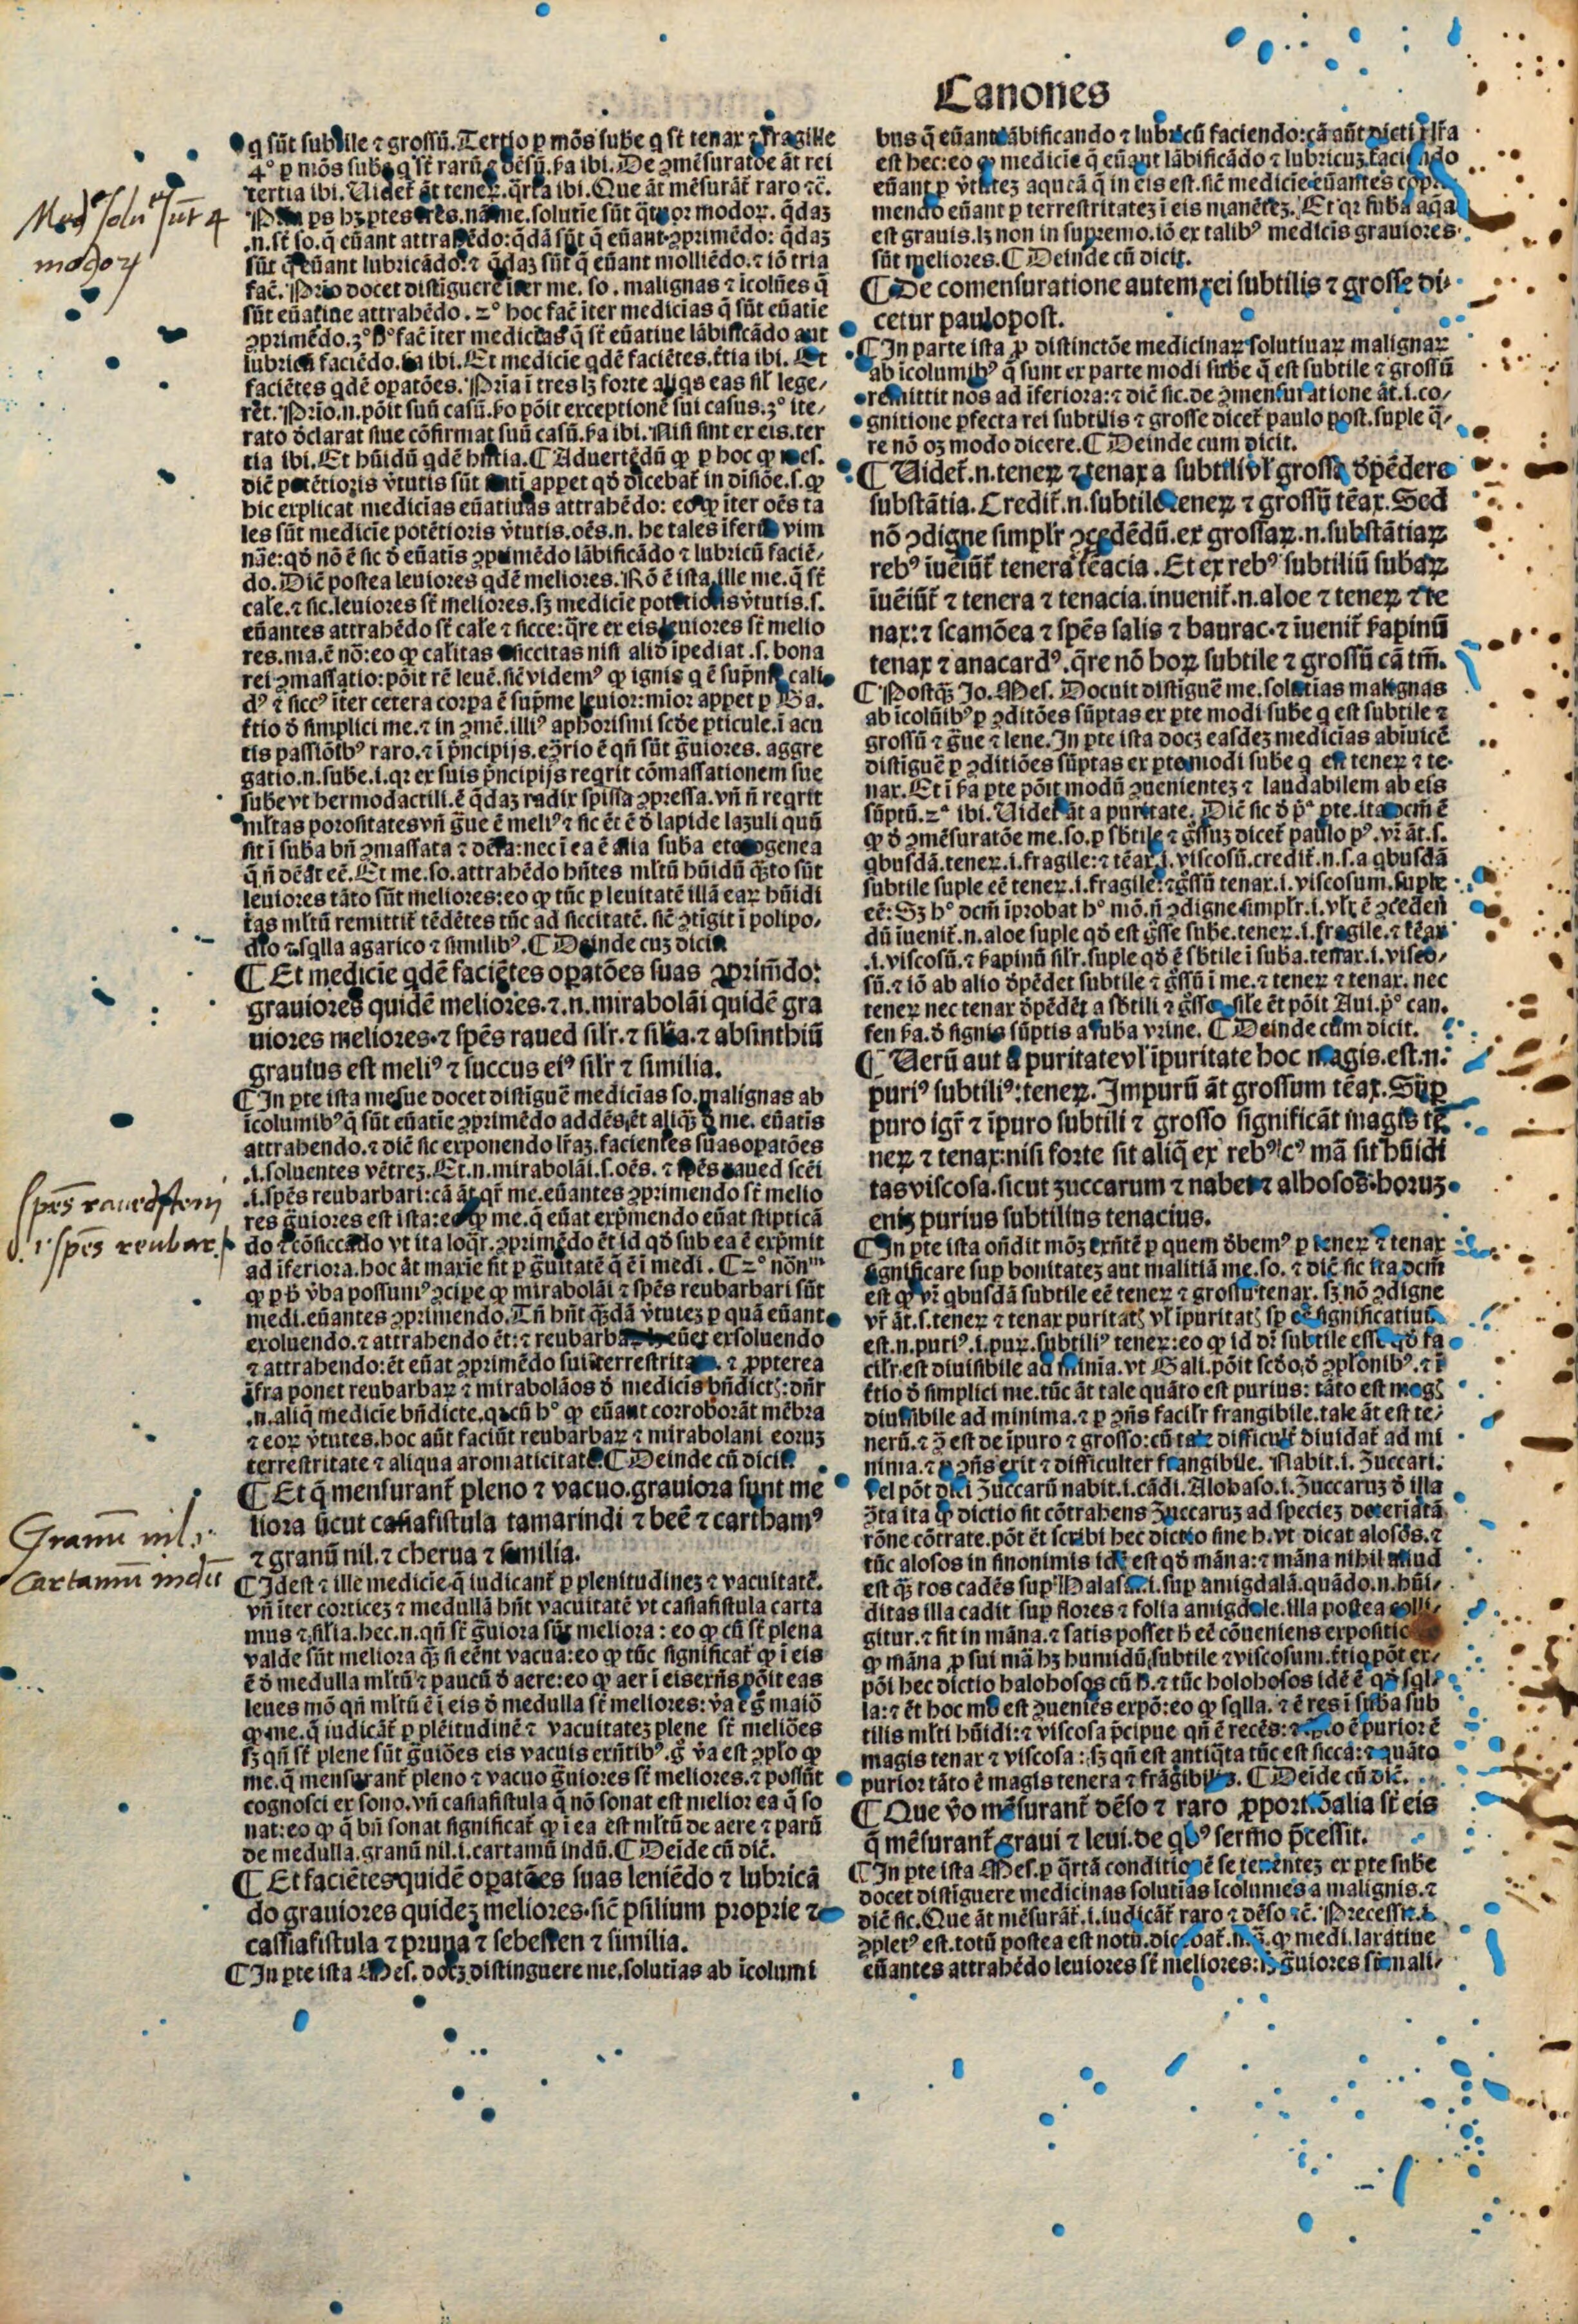 Canones
q sūt subtile ⁊ grossū. Tertio p mōs sube q st̄ tenax ⁊ fragile
4° p mōs sube q st̄ rarū ⁊ dēsū. ẜa ibi. De ꝯmēsuratōe āt rei
tertia ibi. Uidet̄ āt teneꝝ. q̄rta ibi. Que āt mēsurāt̄ raro ⁊c̄.
.n. st̄ so. q̄ euant attrahēdo: q̄dā sūt q̄ euant ꝯprimēdo: q̄daz
sūt q̄ euant lubricādo: ⁊ q̄daz sūt q̄ euant molliēdo. ⁊ iō tria
fac̄. Prīo docet distīguere īter me. so. malignas ⁊ īcolūes q̄
sūt euatiue attrahēdo. 2° hoc fac̄ īter medicīas q̄ sūt euatie
lubricū faciēdo. ẜa ibi. Et medicīe qdē faciētes. t̄tia ibi. Et
faciētes qdē opatōes. Prīa ī tres lꝫ forte aliqs eas sil̄ lege/
rēt. Prīo. n. pōit suū casū. ẜo pōit exceptionē sui casus. 3° ite/
rato ꝺclarat siue cōfirmat suū casū. ẜa ibi. Nisi sint ex eis. ter
tia ibi. Et hūidū qdē hn̄tia. ¶ Aduertēdū ꝙ p hoc ꝙ mes.
hic explicat medicīas euatiuas attrahēdo: eo ꝙ īter oēs ta
les sūt medicīe potētioris v̄tutis. oēs. n. he tales īferūt vim
nāe: qd̄ nō ē sic ꝺ euatis ꝯprimēdo lābificādo ⁊ lubricū faciē/
do. Dic̄ postea leuiores qdē meliores. Rō ē ista. ille me. q̄ st̄
cal̄e. ⁊ sic. leuiores st̄ meliores. sꝫ medicīe potētioris v̄tutis. s.
euantes attrahēdo st̄ cal̄e ⁊ sicce: q̄re ex eis leuiores st̄ melio
res. ma. ē nō: eo ꝙ cal̄itas ⁊ siccitas nisi aliō īpediat. s. bona
rei ꝯmassatio: pōit rē leuē. sic̄ videm⁹ ꝙ ignis q ē sup̄me cali
d⁹ ⁊ sicc⁹ īter cetera corpa ē sup̄me leuior: mior appet p Ga.
t̄tio ꝺ simplici me. ⁊ in ꝯmē. illi⁹ aphorismi scd̄e pticule. ī acu
tis passiōib⁹ raro. ⁊ ī p̄ncipijs. eꝯ̄rio ē qn̄ sūt ḡuiores. aggre
gatio. n. sube. i. qꝛ ex suis p̄ncipijs reqrit cōmassationem sue
sube vt hermodactili. ē q̄daz radix spissa ꝯpressa. vn̄ n̄ reqrit
ml̄tas porositates vn̄ ḡue ē meli⁹ ⁊ sic ēt ē ꝺ lapide lazuli quū
sit ī suba bn̄ ꝯmassata ⁊ dēsa: nec ī ea ē alia suba eterogenea
q̄ n̄ deāt eē. Et me. so. attrahēdo hn̄tes ml̄tū hūidū q̄ꝫto sūt
leuiores tāto sūt meliores: eo ꝙ tūc p leuitatē illā eaꝝ hūidi
t̄as ml̄tū remittit̄ tēdētes tūc ad siccitatē. sic̄ ꝯtīgit ī polipo/
dio ⁊ sqlla agarico ⁊ similib⁹. ¶ Deinde cuz dicit
¶ Et medicīe qdē faciētes opatōes suas ꝯprimēdo:
grauiores quidē meliores. ⁊. n. mirabolāi quidē gra
uiores meliores. ⁊ spēs raued sil̄r. ⁊ sil̄ia. ⁊ absinthiū
grauius est meli⁹ ⁊ succus ei⁹ sil̄r ⁊ similia.
¶ In pte ista mesue docet distīguē medicīas so. malignas ab
īcolumib⁹ q̄ sūt euatie ꝯprimēdo addēs ēt aliq̄ꝫ ꝺ me. euatis
attrahendo. ⁊ dic̄ sic exponendo lr̄az. facientes suas opatōes
.i. soluentes vētrez. Et. n. mirabolāi. s. oēs. ⁊ spēs raued scēi
.i. spēs reubarbari: cā āt qr̄ me. euantes ꝯprimendo st̄ melio
res ḡuiores est ista: eo ꝙ me. q̄ euāt exp̄mendo euāt stipticā
do ⁊ cōsiccādo vt ita loq̄r. ꝯprimēdo ēt id qd̄ sub ea ē exp̄mit
ad īferiora. hoc āt maxīe fit p ḡuitatē q̄ ē ī medi. ¶ 2° nōn
ꝙ p ꝺ v̄ba possum⁹ ꝯcipe ꝙ mirabolāi ⁊ spēs reubarbari sūt
medi. euantes ꝯprimendo. Tn̄ hn̄t q̄dā v̄tutez p quā euant
exoluendo. ⁊ attrahendo ēt: ⁊ reubarbar euat exsoluendo
⁊ attrahendo: ēt euāt ꝯprimēdo sui terrestritate. ⁊ ꝓpterea
īfra ponet reubarbaꝝ ⁊ mirabolāos ꝺ medicis bn̄dictꝭ: dn̄r
.n. aliq̄ medicīe bn̄dicte. q2 cū h° ꝙ euant corroborāt mēbra
⁊ eoꝝ v̄tutes. hoc aūt faciūt reubarbaꝝ ⁊ mirabolani eoruꝫ
terrestritate ⁊ aliqua aromaticitate. ¶ Deinde cū dicit.
¶ Et q̄ mensurant̄ pleno ⁊ vacuo. grauiora sunt me
liora sicut casiafistula tamarindi ⁊ beē ⁊ cartham⁹
⁊ granū nil. ⁊ cherua ⁊ similia.
¶ Idest ⁊ ille medicīe q̄ iudicant̄ p plenitudinez ⁊ vacuitatē.
vn̄ īter corticez ⁊ medullā hn̄t vacuitatē vt casiafistula carta
mus ⁊ sil̄ia. hec. n. qn̄ st̄ ḡuiora sūt meliora: eo ꝙ cū st̄ plena
valde sūt meliora q̄ꝫ si eēnt vacua: eo ꝙ tūc significat̄ ꝙ ī eis
ē ꝺ medulla ml̄tū ⁊ paucū ꝺ aere: eo ꝙ aer ī eis exn̄s pōit eas
leues mō qn̄ ml̄tū ē ī eis ꝺ medulla st̄ meliores: v̄a ē ḡ maiō
ꝙ me. q̄ iudicāt̄ p plēitudinē ⁊ vacuitatez plene st̄ meliōes
sꝫ qn̄ st̄ plene sūt ḡuiōes eis vacuis exn̄tib⁹. ḡ v̄a est ꝯplo ꝙ
me. q̄ mensurant̄ pleno ⁊ vacuo ḡuiores st̄ meliores. ⁊ possūt
cognosci ex sono. vn̄ casiafistula q̄ nō sonat est melior ea q̄ so
nat: eo ꝙ q̄ bn̄ sonat significat̄ ꝙ ī ea est ml̄tū de aere ⁊ parū
de medulla. granū nil. i. cartamū indū. ¶ Deīde cū dic̄.
¶ Et faciētes quidē opatōes suas leniēdo ⁊ lubricā
do grauiores quideꝫ meliores. sic̄ psilium proprie ⁊
cassiafistula ⁊ pruna ⁊ sebesten ⁊ similia.
¶ In pte ista Mes. docꝫ distinguere me. solutīas ab īcolumi
bus q̄ euant lābificando ⁊ lubricū faciendo: cā aūt dicti
est hec: eo ꝙ medicīe q̄ euant lābificādo ⁊ lubricuꝫ faciendo
euant p v̄tutez aqueā q̄ in eis est. sic̄ medicīe euantes cōpri
mendo euant p terrestritatez ī eis manētez. Et qꝛ suba aq̄a
est grauis. lꝫ non in supremo. iō ex talib⁹ medicīs grauiores
sūt meliores. ¶ Deinde cū dicit.
¶ De comensuratione autem rei subtilis ⁊ grosse di-
cetur paulopost.
¶ In parte ista ꝓ distinctōe medicinaꝝ solutiuaꝝ malignaꝝ
ab īcolumib⁹ q̄ sunt ex parte modi sube q̄ est subtile ⁊ grossū
remittit nos ad īferiora: ⁊ dic̄ sic. de ꝯmensuratione āt. i. co/
gnitione pfecta rei subtilis ⁊ grosse dicet̄ paulo post. suple q̄/
re nō oꝫ modo dicere. ¶ Deinde cum dicit.
¶ Uidet̄. n. teneꝝ ⁊ tenax a subtili vl̄ grossa ꝺpēdere
substātia. Credit̄. n. subtile teneꝝ ⁊ grossū tēax. Sed
nō ꝯdigne simpl̄r ꝯcedēdū. ex grossaꝝ. n. substātiaꝝ
reb⁹ iuēiūt̄ tenera tēacia. Et ex reb⁹ subtiliū subaꝝ
īuēiūt̄ ⁊ tenera ⁊ tenacia. inuenit̄. n. aloe ⁊ teneꝝ ⁊ te
nax: ⁊ scamōea ⁊ spēs salis ⁊ baurac. ⁊ īuenit̄ ẜapinū
tenax ⁊ anacard⁹. q̄re nō hoꝝ subtile ⁊ grossū cā tm̄.
¶ Postq̄ꝫ Jo. Mes. Docuit distīguē me. solutīas malignas
ab īcolūib⁹ p ꝯditōes sūptas ex pte modi sube q est subtile ⁊
grossū ⁊ ḡue ⁊ lene. In pte ista docꝫ easdeꝫ medicīas abīuicē
distīguē p ꝯditiōes sūptas ex pte modi sube q est teneꝝ ⁊ te-
nax. Et ī ẜa pte pōit modū ꝯuenientez ⁊ laudabilem ab eis
sūptū. 2ᵃ ibi. Uidet̄ āt a puritate. Dic̄ sic ꝺ pᵃ pte. ita dcm̄ ē
ꝙ ꝺ ꝯmēsuratōe me. so. p sbtile ⁊ ḡssuꝫ dicet̄ paulo p⁹. vr̄ āt. s.
qbusdā. teneꝝ. i. fragile: ⁊ tēax. i. viscosū. credit̄. n. s. a qbusdā
subtile suple eē teneꝝ. i. fragile: ⁊ ḡssū tenax. i. viscosum. suple
eē: Sꝫ h° dcm̄ īprobat h° mō. n̄ ꝯdigne simpl̄r. i. vl̄r ē ꝯcedēn
dū īuenit̄. n. aloe suple qd̄ est ḡsse sube. teneꝝ. i. fragile. ⁊ tēax
.i. viscosū. ⁊ ẜapinū sil̄r. suple qd̄ ē sbtile ī suba. tenax. i. viscō/
sū. ⁊ iō ab alio ꝺpēdet subtile ⁊ ḡssū ī me. ⁊ teneꝝ ⁊ tenax. nec
teneꝝ nec tenax ꝺpēdēt a sbtili ⁊ ḡsso. sil̄e ēt pōit Aui. p° can.
fen ẜa. ꝺ signis sūptis a suba vrine. ¶ Deinde cum dicit.
¶ Uerū aut a puritate vl̄ īpuritate hoc magis. est. n.
puri⁹ subtili⁹: teneꝝ. Impurū āt grossum tēax. Sūp
puro igr̄ ⁊ īpuro subtili ⁊ grosso significāt magis tē
neꝝ ⁊ tenax: nisi forte sit aliq̄ ex reb⁹ c⁹ mā sit hūidi
tas viscosa. sicut zuccarum ⁊ nabet ⁊ alhosos. horuꝫ
eniꝫ purius subtilius tenacius.
¶ In pte ista on̄dit mōꝫ exn̄tē p quem ꝺbem⁹ p teneꝝ ⁊ tenax
significare sup bonitatez aut malitiā me. so. ⁊ dic̄ sic ita dcm̄
est ꝙ vr̄ qbusdā subtile eē teneꝝ ⁊ grossū tenax. sꝫ nō ꝯdigne
vr̄ āt. s. teneꝝ ⁊ tenax puritatꝭ vl̄ īpuritatꝭ sp eē significatiuū
est. n. puri⁹. i. puꝝ. subtili⁹ teneꝝ: eo ꝙ id dr̄ subtile esse qd̄ fa
cil̄r est diuisibile ad minīa. vt Gali. pōit scd̄o, ꝺ ꝯplonib⁹. ⁊ ī
t̄tio ꝺ simplici me. tūc āt tale quāto est purius: tāto est magꝭ
diuisibile ad minima. ⁊ p ꝯn̄s facil̄r frangibile. tale āt est te/
nerū. ⁊ ꝫ est de īpuro ⁊ grosso: cū tale difficult̄ diuidat̄ ad mi
nima. ⁊ p ꝯn̄s erit ⁊ difficulter frangibile. Nabit. i. Zuccari.
vel pōt dici Zuccarū nabit. i. cādi. Alohaso. i. Zuccaruꝫ ꝺ illa
ꝯta ita ꝙ dictio sit cōtrahens Zuccaruꝫ ad specieꝫ determīatā
rōne cōtrate. pōt ēt scribi hec dictio sine h. vt dicat alosos. ⁊
tūc alosos in sinonimis idē est qd̄ māna: ⁊ māna nihil aliud
ditas illa cadit sup flores ⁊ folia amigdale. illa postea colli/
gitur. ⁊ fit in māna. ⁊ satis posset ꝺ eē cōueniens expositio
ꝙ māna ꝓ sui mā hꝫ humidū, subtile ⁊ viscosum. t̄tio pōt ex/
pōi hec dictio halohosos cū h. ⁊ tūc holohosos idē ē qd̄ sqlla
la: ⁊ ēt hoc mō est ꝯueniēs expō: eo ꝙ sqlla. ⁊ ē res ī suba sub
tilis ml̄ti hūidi: ⁊ viscosa p̄cipue qn̄ ē recēs: ⁊ qto ē purior ē
magis tenax ⁊ viscosa: sꝫ qn̄ est antiq̄ta tūc est sicca: ⁊ quāto
purior tāto ē magis tenera ⁊ frāgibilis. ¶ Deīde cū dic̄.
¶ Que v̄o mēsurant̄ dēso ⁊ raro ꝓportiōalia st̄ eis
q̄ mēsurant̄ graui ⁊ leui. de qb⁹ sermo p̄cessit.
¶ In pte ista Mes. p q̄rtā conditionē se tenentez ex pte sube
docet distīguere medicinas solutīas īcolumes a malignis. ⁊
dic̄ sic. Que āt mēsurāt̄. i. iudicāt̄ raro ⁊ dēso ⁊c̄. Precessit. i.
ꝯplet⁹ est. totū postea est notū. dicebat̄. n. ꝙ medi. laxatiue
euantes attrahēdo leuiores st̄ meliores: ⁊ ḡuiores st̄ mali/
Med solū sūt 4
modoꝝ
spēs raued sceni
.i. spēs reubar.
Granū nil.
Cartamū indū